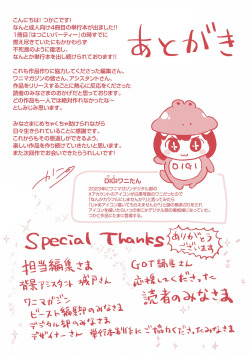 あとがき
こんにちは！つかこです！
なんと成人向け4冊目の単行本が出ました!!
1冊目「はつこいパーティー」の時までに
燃え尽きていたにもかかわらず
不死鳥のように復活し、
なんとか単行本を出し続けられております!!
これも作品作りに協力してくださった編集さん、
ワニマガジンの皆さん、アシスタントさん、
作品をリリースするごとに熱心に反応をくださる
読者のみなさまのおかげだと思っております。
どの作品も一人では絶対作れなかったな～
としみじみ思います。
みなさまにめちゃくちゃ助けられながら
日々生きられていることに感謝です。
これからもその恩返しができるよう、
楽しい作品を作り続けていきたいと思います！
また次回作でお会いできたらうれしいです！
DIGI
DIGIワニたん
2023年にワニマガジンデジタル部の
Special Thanks
ありがとうございます!
担当編集さま
背景アシスタント 城戸さん
ワニマガジン
ビースト編集部のみなさま
デジタル部のみなさま
デザイナーさん 単行本制作にご協力くださったみなさま
GOT編集さん
応援してくださった
読者のみなさま